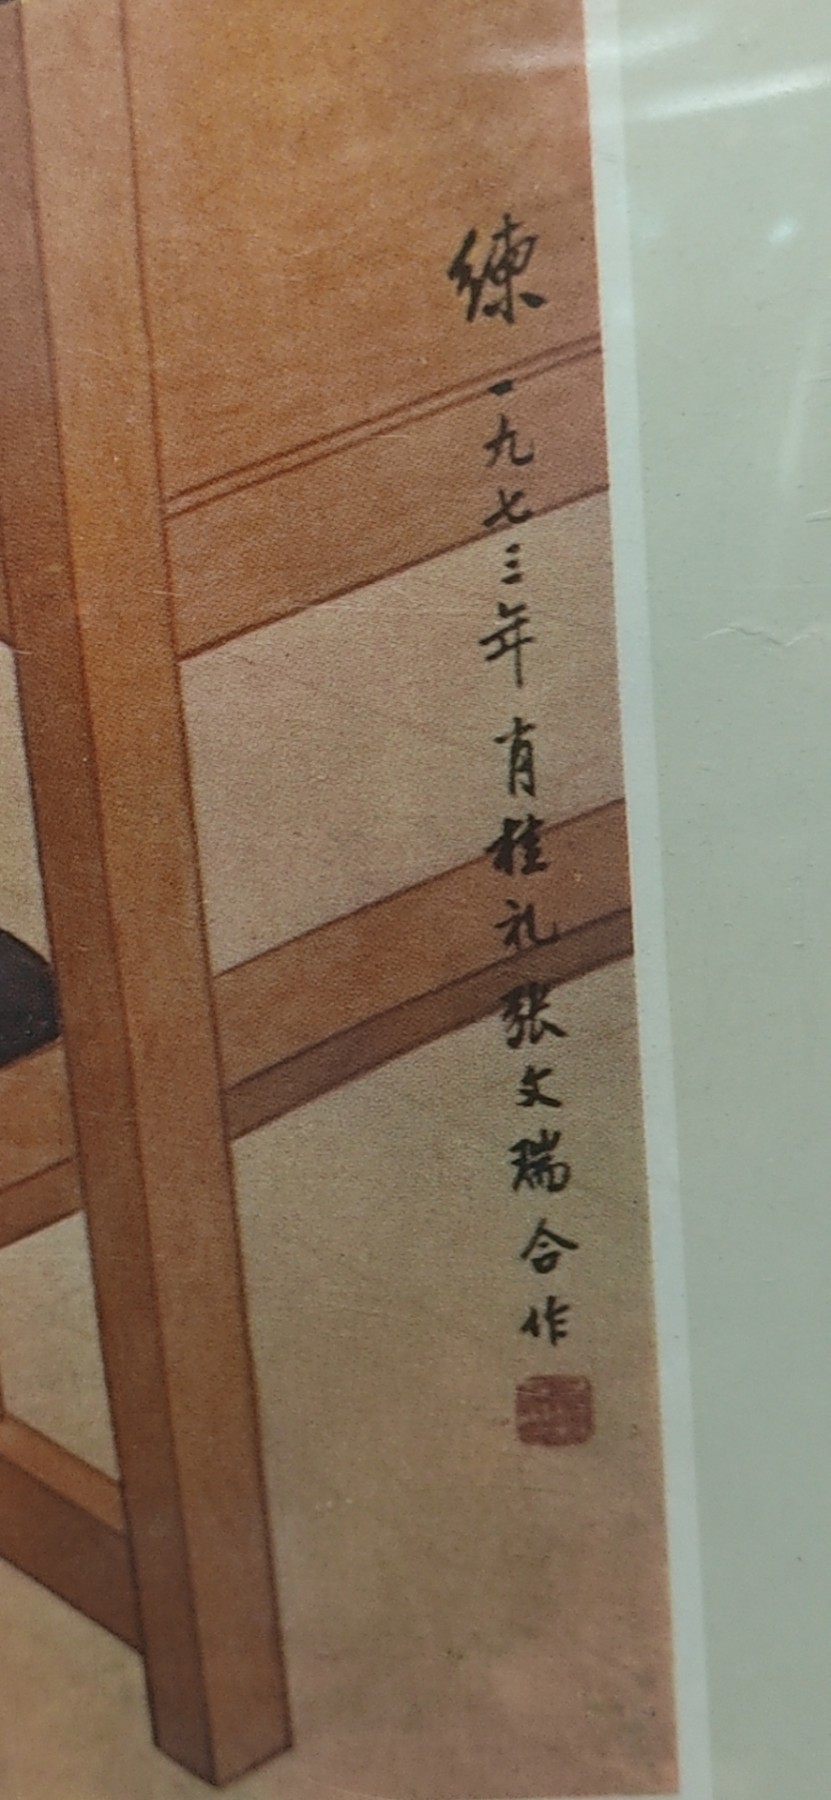 练 一九七三年 肖桂礼 张文瑞 合作